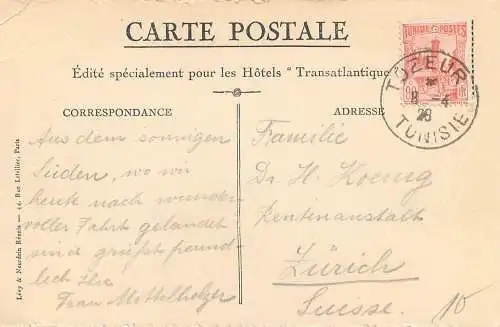 CARTE POSTALE
Édité spécialement pour les Hôtels "Transatlantique
TUNISIE POSTES
TOZEUR
8 -4
28
TUNISIE
CORRESPONDANCE
ADRESSE
Aus dem sonnigen
Süden, wo wir
heute nach wunder-
voller Fahrt gelandet
sind grüsst freund-
lich Ihr
Frau Mittelholzer
Familie
Dr. H. Koenig
Rentenanstalt
Zürich
Suisse.
Lévy & Neurdein Réunis — 44, Rue Letellier, Paris